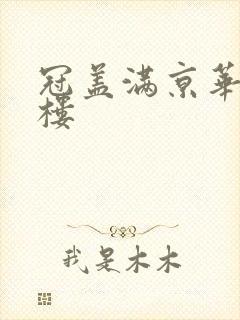 冠盖满京华
楼
我是木木